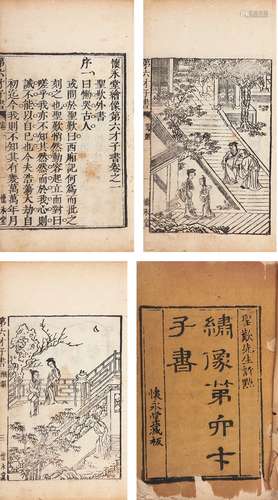 懷永堂繪像第六才子書卷之一
聖歎外書
序一曰慟哭古人
或問於聖歎曰西廂記何為而批之
刻之也聖歎悄然動容起立而對曰
嗟乎我亦不知其然然而於我心則
誠不能以自已也今夫浩蕩大劫自
初迄今我則不知其有幾萬萬年月
第六才子書
懷永堂
第六才子書
懷永堂
第六才子書
懷永堂
聖歎先生評點
繡像第六才
子書
懷永堂藏板